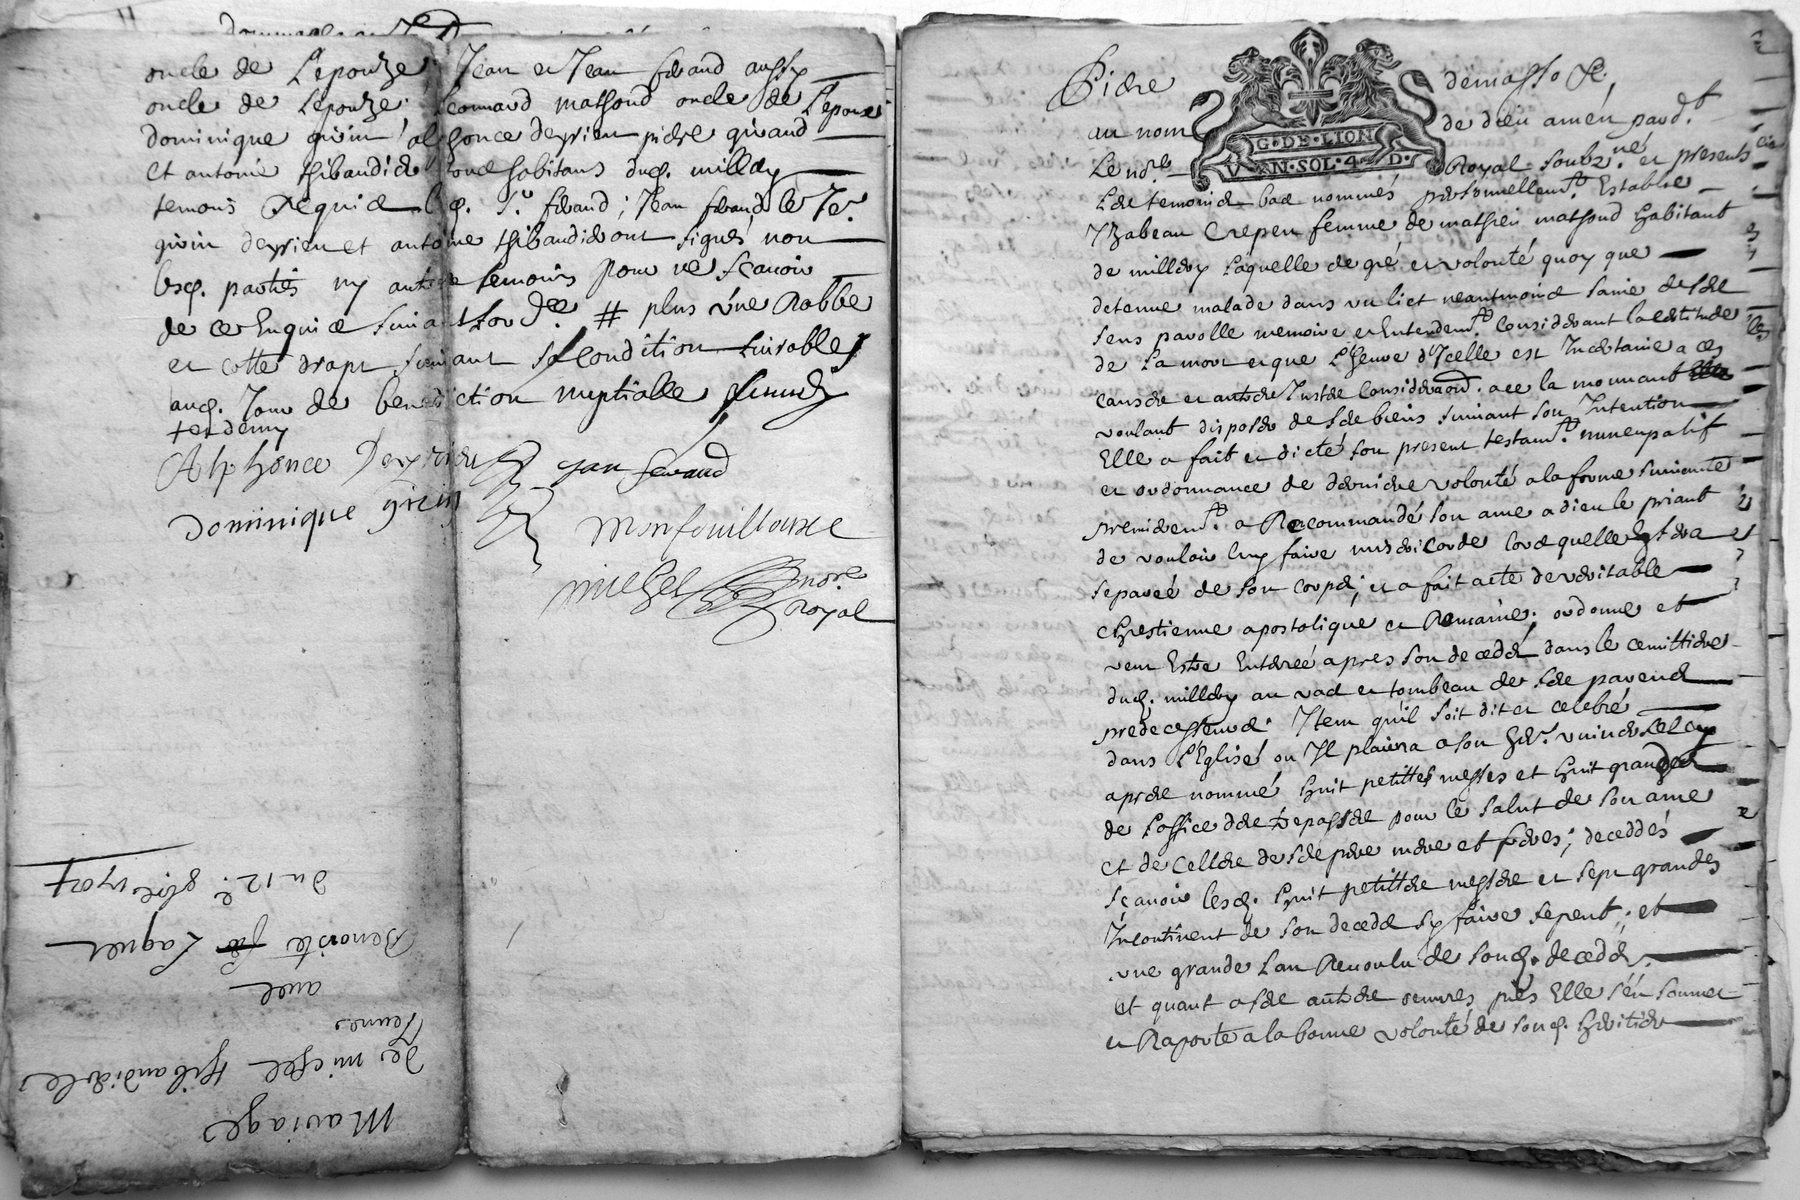 oncle de L'epouze, Jean et Jean ferand aussy
oncle de Lepouze; Leonnard mathoud oncle de Lepouze
dominique givin alphonce deyrieu pierre givaud
et antoine thibaudier tous habitans dud. millery
temoins Requis led. Sr. ferand; Jean ferand le Je.
givin deyrieu et antoine thibaudier ont signés non
lesd. parties ny autres temoins pour ne sçavoir
de ce Enquis suivant lord.ce # plus une Robbe
et cotte drapt suivant sa condition
aud. Jour de benediction nuptialle
Alphonce Deyrieu Jan ferand
Dominique givin
monfouilloux
michel nore
royal
Mariage
de michel thibaudier le
Jeune
avec
Benoiste Laguet
du 12e. 8bre 1707
G·DE·LION
V AN·SOL·4 D·
au nom de dieu amén pard.t
Le no.re Royal soubz.né et presents
Les temoins bas nommés personnellem.t Establie
Yzabeau Crepeu femme de mathieu mathoud habitant
de millery laquelle de gré et volonté quoy que
detenue malade dans un lict neantmoins saine de ses
sens parolle memoire et Entendem.t Considerant la certitude
de la mort et que L'heure d'Icelle est Incertaine a ces
causes et autres Justes Considera.ons. a ce la mouvant
voulant disposer de ses biens suivant son Intention
Elle a fait et dicté son present testam.t nuncupatif
et ordonnance de derniere volonté a la forme suivante
premierem.t a Recommandé son ame a dieu le priant
de vouloir luy faire misericorde lors quelle Estera
separeé de son corps; et a fait acte de veritable
Chrestienne apostolique et Romaine; ordonne et
veut Estre Enterreé apres son decedz dans le cemittiere
dud. millery au vas et tombeau de ses parens
predecesseurs. Item qu'il soit dit et celebré
dans L'Eglise ou Il plaira a son her. univer.sel cy
apres nommé huit petittes messes et huit grandes
de Loffice des trepasses pour le salut de son ame
et de Celles de ses pere mere et freres; deceddés
sçavoir lesd. huit petittes messes et sept grandes
Incontinent de son decedz sy faire se peut; et
une grande Lan Revoulu de sond. decedz.
Et quant a ses autres œuvres pies Elle s'en soumet
et Raporte a la bonne volonté de sond. heritier